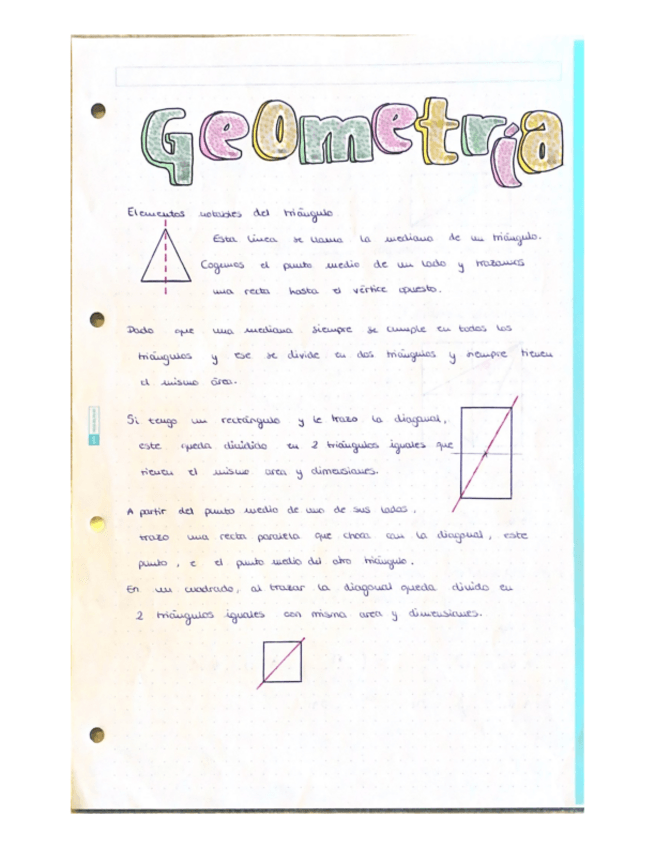 Geometría
Elementos notables del triángulo
Esta línea se llama la mediana de un triángulo.
Cogemos el punto medio de un lado y trazamos
una recta hasta el vértice opuesto.
Dado que una mediana siempre se cumple en todos los
triángulos y ese se divide en dos triángulos y siempre tienen
el mismo área.
Si tengo un rectángulo y le trazo la diagonal,
este queda dividido en 2 triángulos iguales que
tienen el mismo area y dimensiones.
A partir del punto medio de uno de sus lados,
trazo una recta paralela que choca con la diagonal, este
punto, e el punto medio del otro triángulo.
En un cuadrado, al trazar la diagonal queda divido en
2 triángulos iguales con misma area y dimensiones.